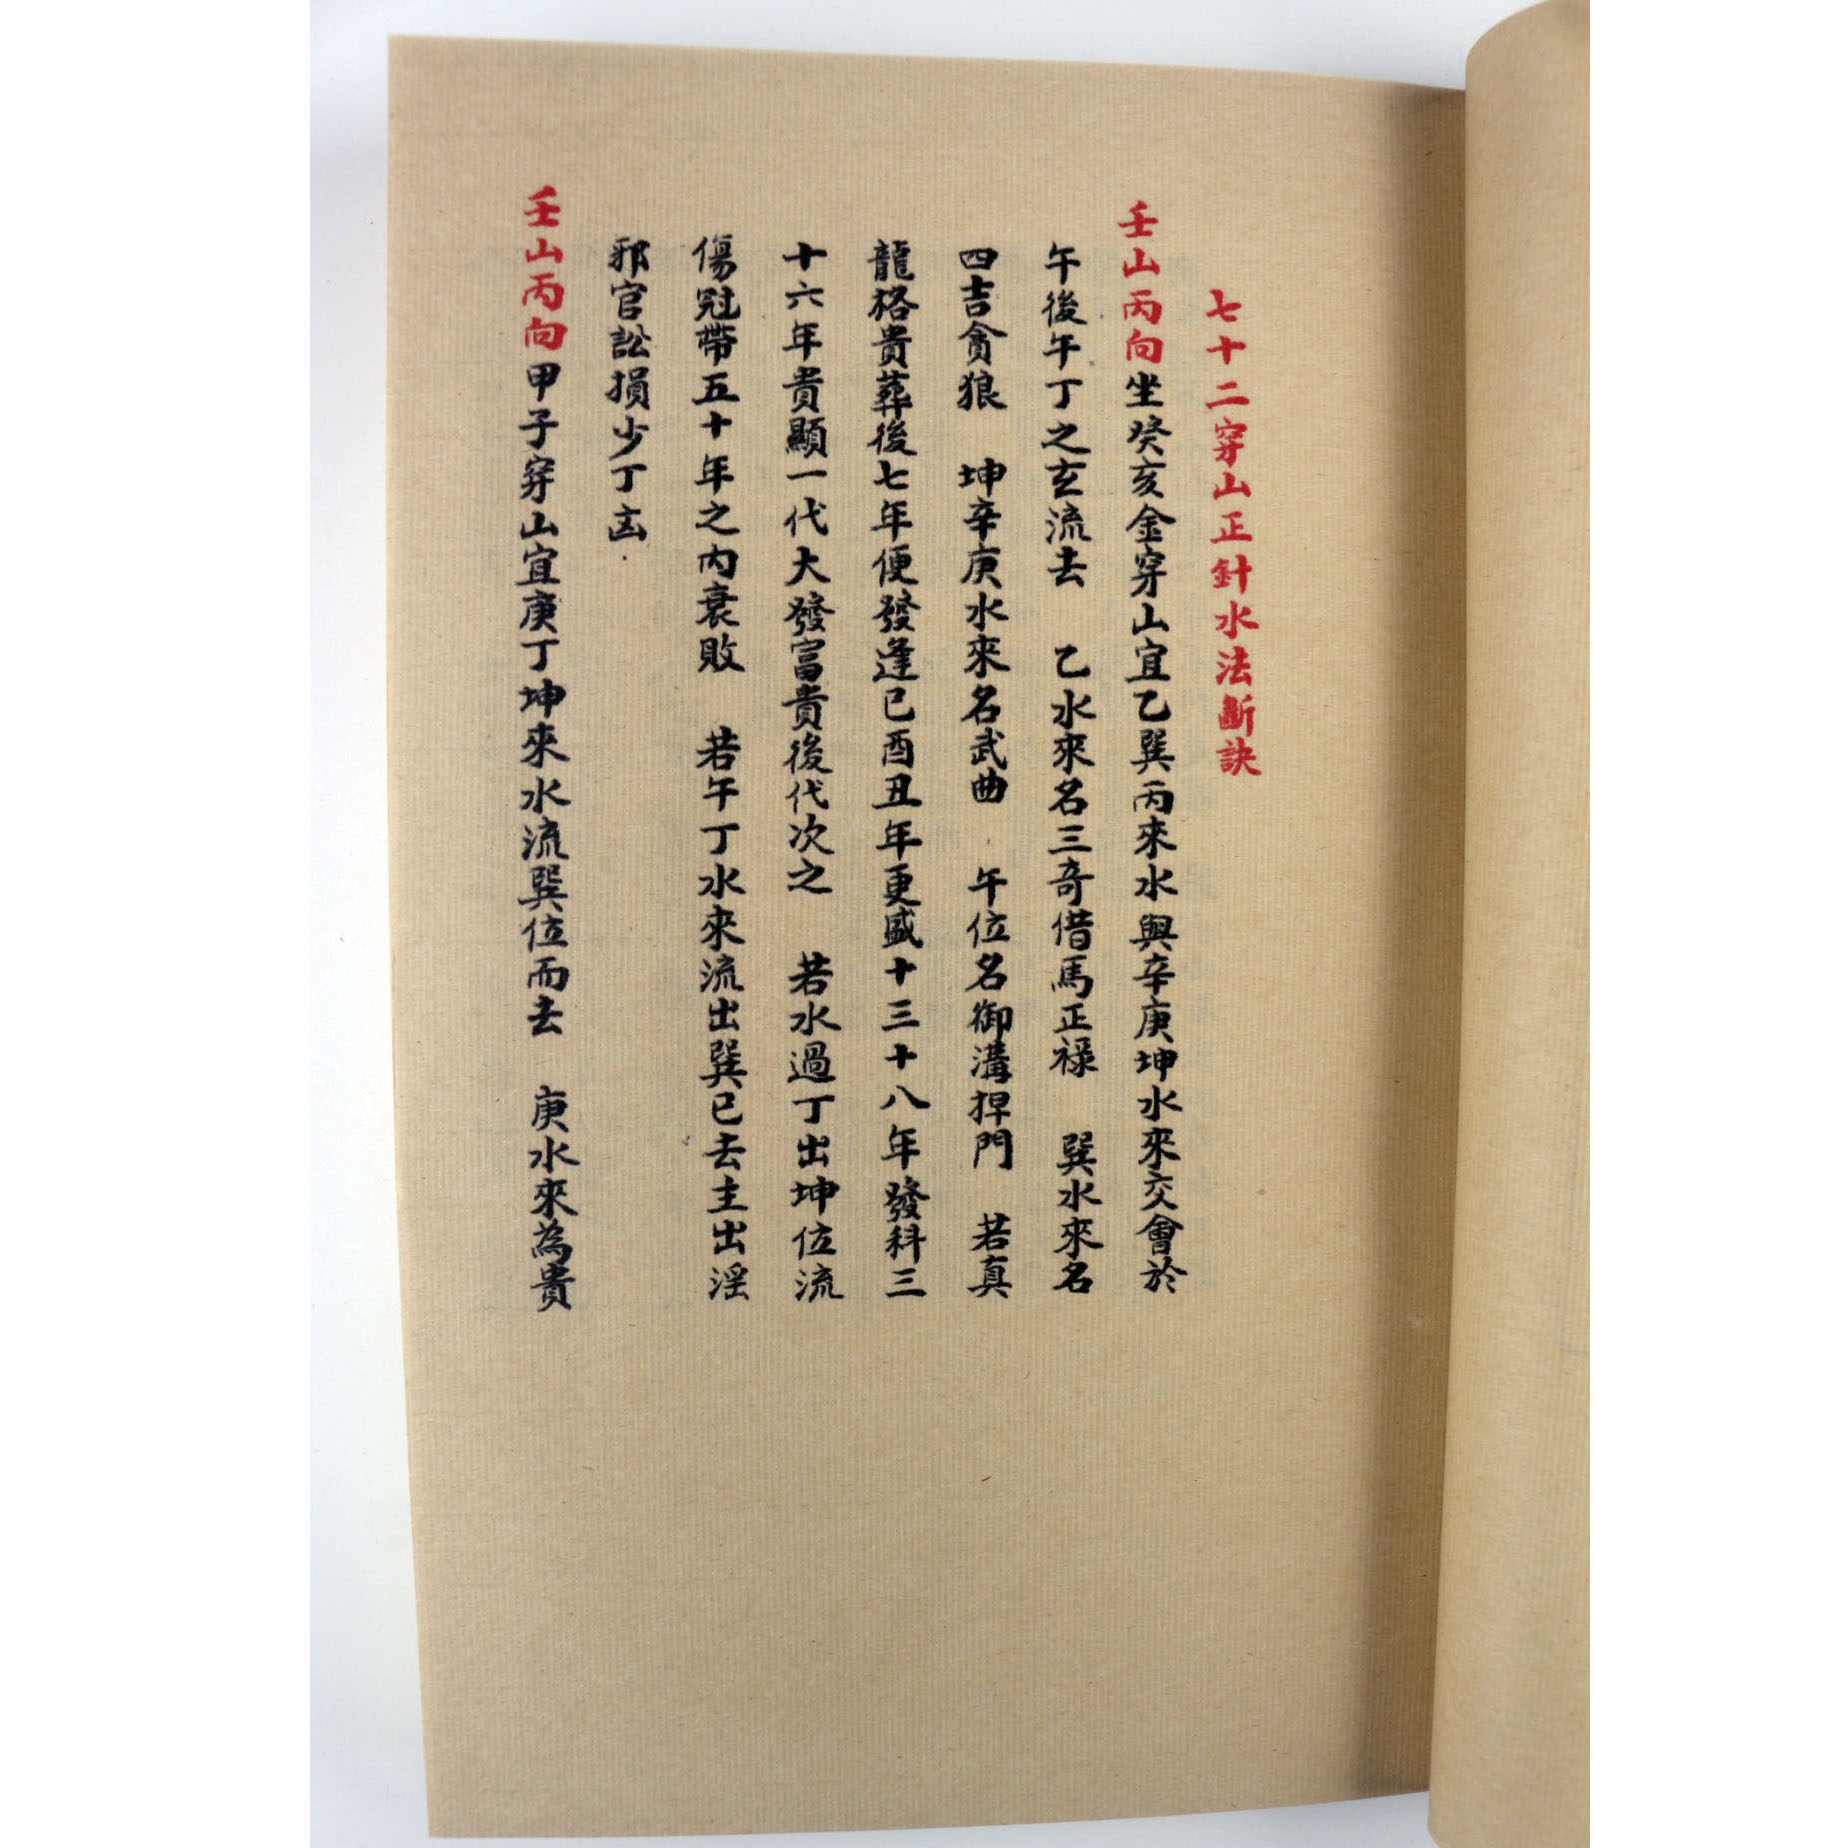 七十二穿山正針水法斷訣
壬山丙向坐癸亥金穿山宜乙巽丙來水與辛庚坤水來交會於
午後午丁之玄流去 乙水來名三奇借馬正祿 巽水來名
四吉貪狼 坤辛庚水來名武曲 午位名御溝捍門 若真
龍格貴葬後七年便發逢巳酉丑年更盛十三十八年發科三
十六年貴顯一代大發富貴後代次之 若水過丁出坤位流
傷冠帶五十年之內衰敗 若午丁水來流出巽巳去主出淫
邪官訟損少丁凶
壬山丙向甲子穿山宜庚丁坤來水流巽位而去 庚水來為貴